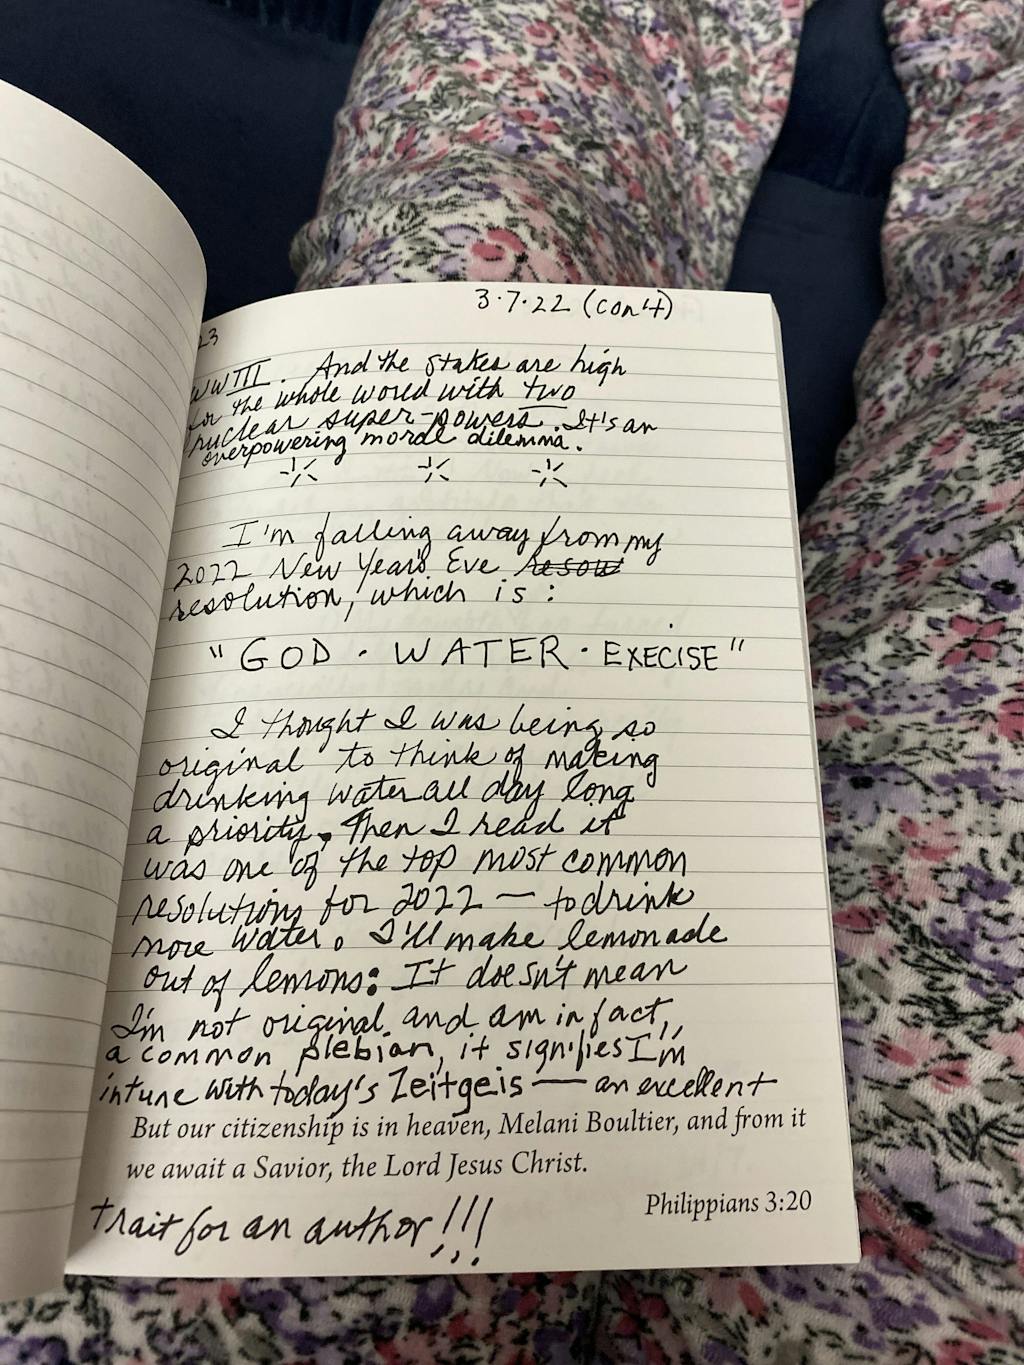 3.7.22 (con't)
23
WWIII. And the stakes are high
for the whole world with two
nuclear super-powers. It's an
overpowering moral dilemma.
I'm falling away from my
2022 New Year's Eve resow
resolution, which is:
"GOD · WATER · EXECISE"
I thought I was being so
original to think of making
drinking water all day long
a priority. Then I read it
was one of the top most common
resolutions for 2022 — to drink
more water. I'll make lemonade
out of lemons: It doesn't mean
I'm not original and am in fact,
a common plebian, it signifies I'm
intune with today's Zeitgeis — an excellent
But our citizenship is in heaven, Melani Boultier, and from it
we await a Savior, the Lord Jesus Christ.
Philippians 3:20
trait for an author!!!